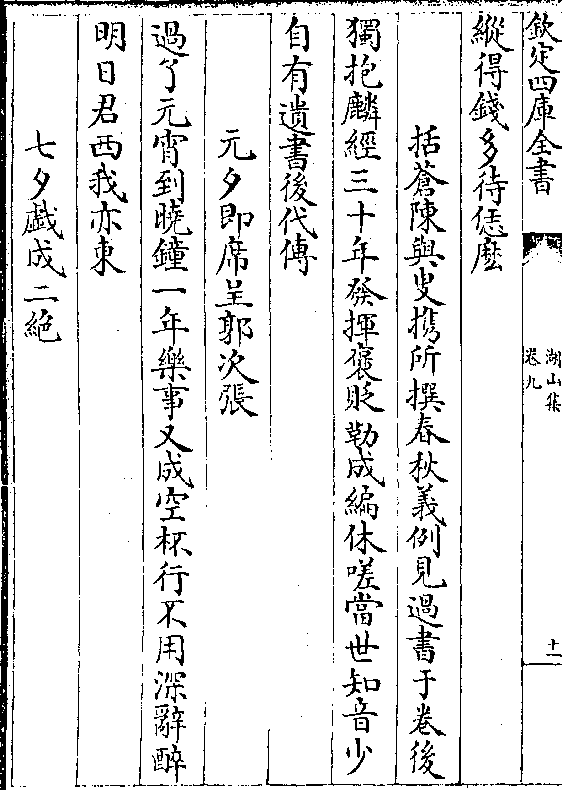 欽定四庫全書
湖山集
卷九
十一
縱得錢多待恁麽
括蒼陳與叟携所撰春秋義例見過書于卷後
獨抱麟經三十年發揮褒貶勒成編休嗟當世知音少
自有遺書後代傳
元夕即席呈郭次張
過了元宵到曉鐘一年樂事又成空杯行不用深辭醉
明日君西我亦東
七夕戲成二絶